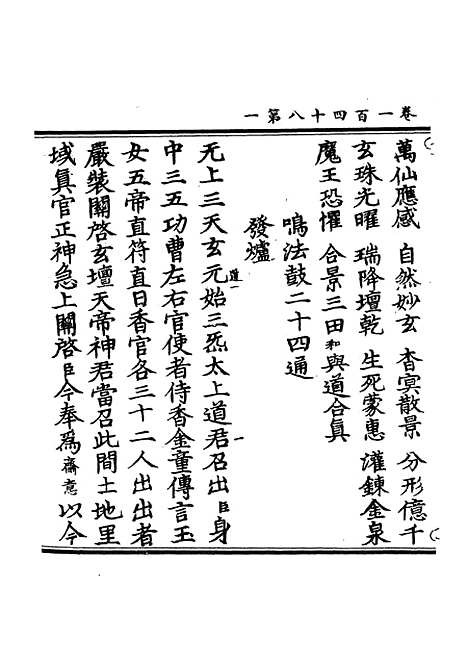 卷一百四十八第一
萬仙應感　自然妙玄　杳冥散景　分形億千
玄珠光曜　瑞降壇乾　生死蒙惠　灌鍊金泉
魔王恐懼　合景三田　和與道合真
鳴法鼓二十四通
發爐
无上三天玄元始三炁太上道君召出臣身
中三五功曹左右官使者侍香金童傳言玉
女五帝直符直日香官各三十二人出出者
嚴裝關啓玄壇天帝神君當召此間土地里
域真官正神急上關啓臣今奉為齋意以今